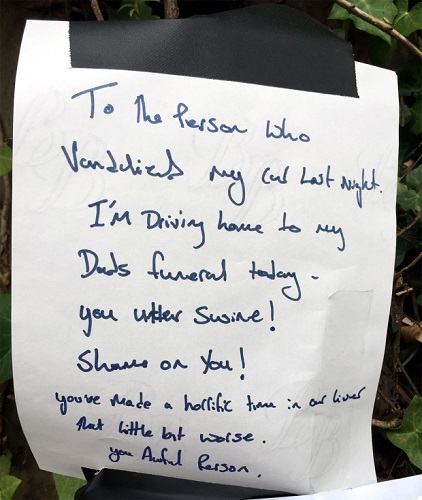 To The Person Who
Vandalised my car Last Night.
I'm Driving home to my
Dads funeral today -
you utter Swine!
Shame on You!
you've made a horrific time in our lives
that little bit worse.
you Awful Person.